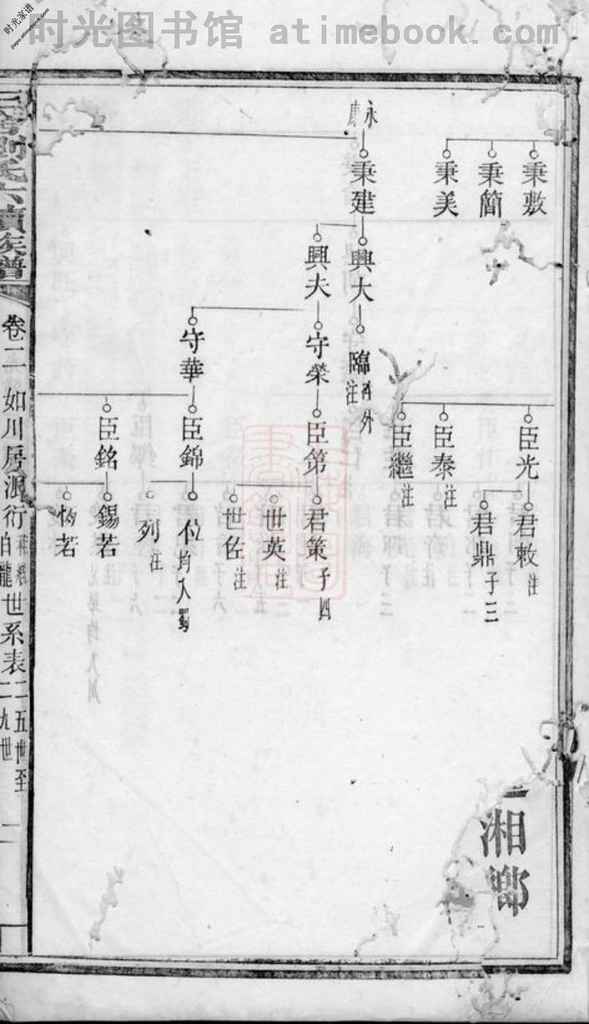 时光图书馆 atimebook.com
时光家谱
秉敷
秉簡
秉美
永康
秉建
興大
臨
注
外
興夫
守榮
守華
臣光
臣泰注
臣繼注
臣第
臣錦
臣銘
君敕注
君鼎子三
君策子四
世英注
世佐注
位均入蜀
列注
錫若
恂若
六續族譜
卷二
如川房派衍
世系表
二五世至
二九世
二
湘鄉